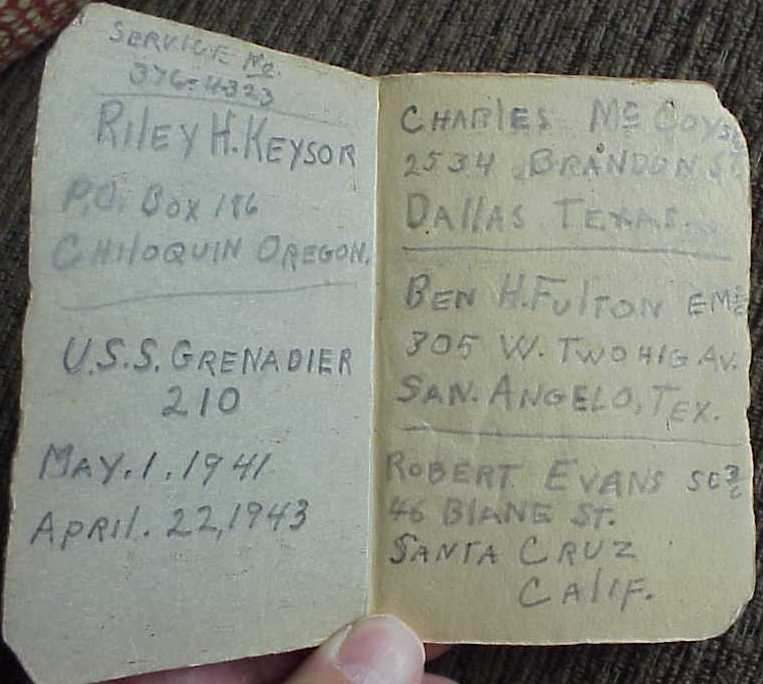 SERVICE No.
376-4323
RILEY H. KEYSOR
P.O. BOX 186
CHILOQUIN OREGON.
U.S.S. GRENADIER
210
MAY. 1. 1941
APRIL. 22, 1943
CHARLES McCOY
2534 BRANDON ST.
DALLAS TEXAS.
BEN H. FULTON EM
305 W. TWOHIG AV.
SAN. ANGELO, TEX.
ROBERT EVANS SC 3/c
46 BLANE ST.
SANTA CRUZ
CALIF.